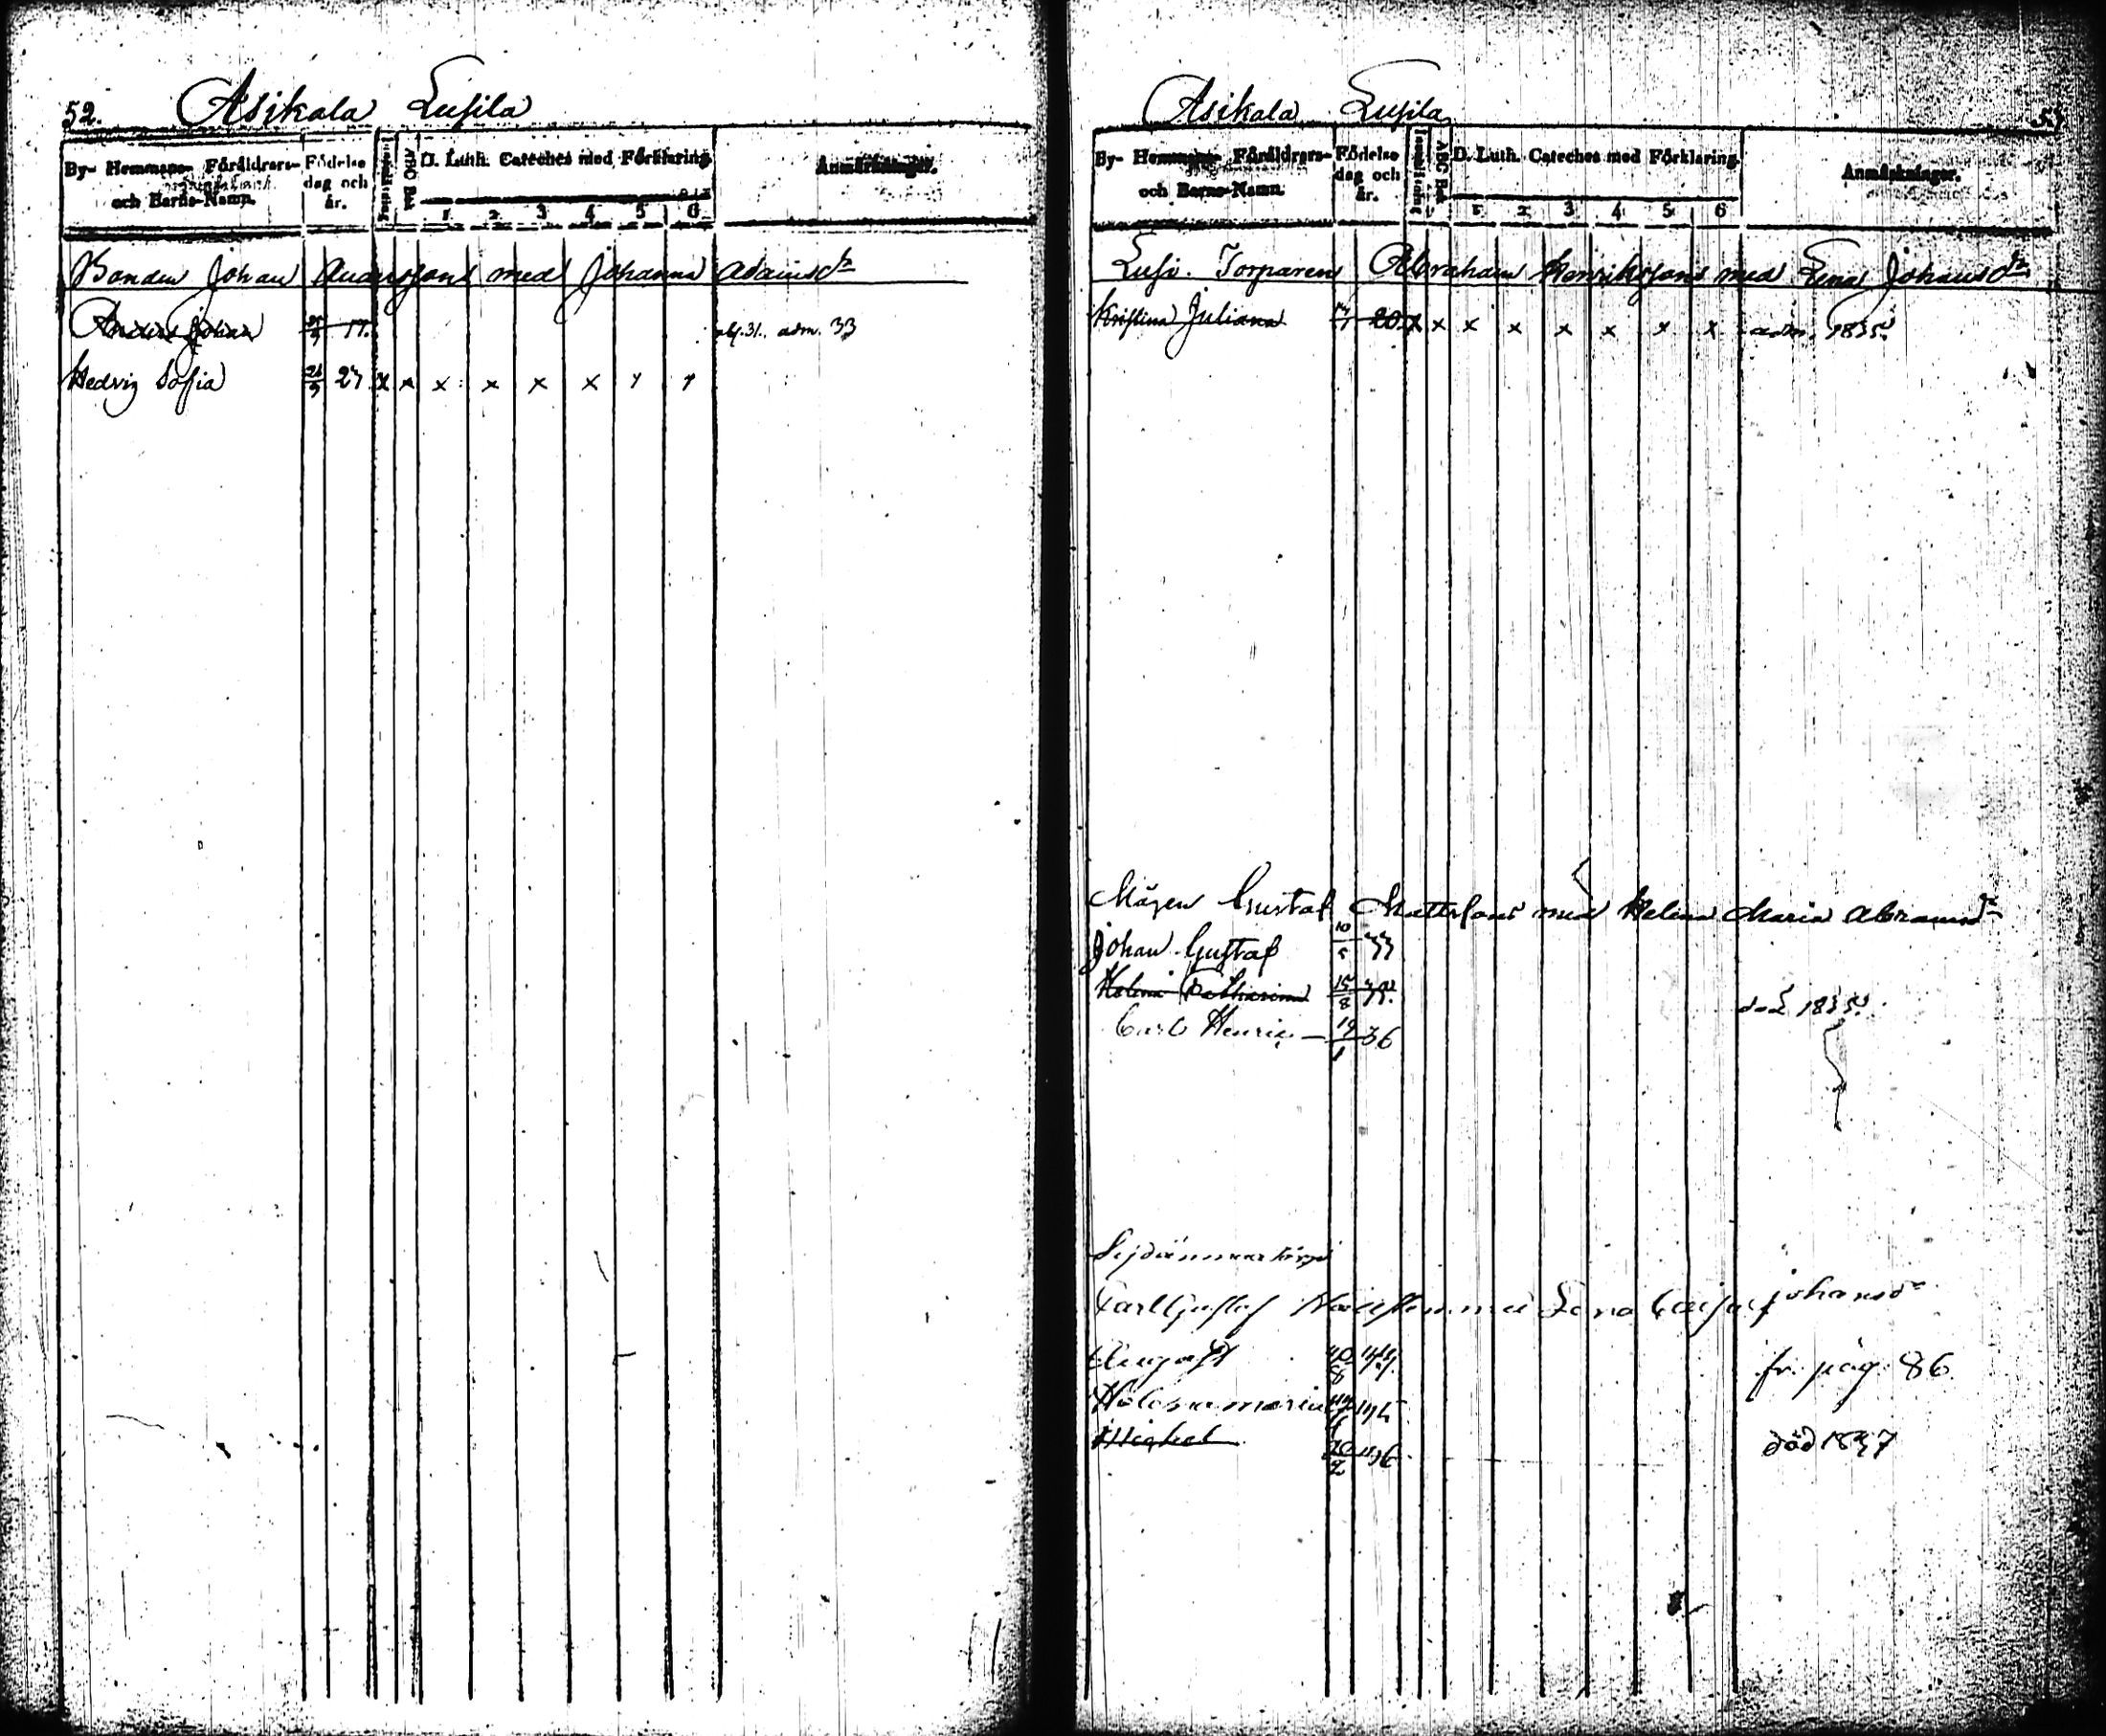 52. Asikala Lusila
By- Hemmans- Föräldrars- och Barns-Namn. Födelse dag och år. ABC Bok D. Luth. Cateches med Förklaring. Anmärkningar.
1 2 3 4 5 6
Bonden Johan Anderssons med Johanna Adamsdr
Anders Johan 17. abs. 31. adm. 33
Hedvig Sofia 27 x x x x x x x x
Asikala Lusila 53
By- Hemmans- Föräldrars- och Barns-Namn. Födelse dag och år. ABC Bok D. Luth. Cateches med Förklaring. Anmärkningar.
1 2 3 4 5 6
Lusi. Torparens Abraham Henrikssons med Lena Johansdr
Kristina Juliana 20. x x x x x x x x adm. 1835.
Mågen Gustaf Mattssons med Helena Maria Abramsdr
Johan Gustaf 33
Helena Catharina 15/8 35. död 1835.
Carl Henric 19/1 36
Carl Gustaf med Lena Cajsa Johansdr
August fr. pag. 86
Helena Maria
Michel död 1837